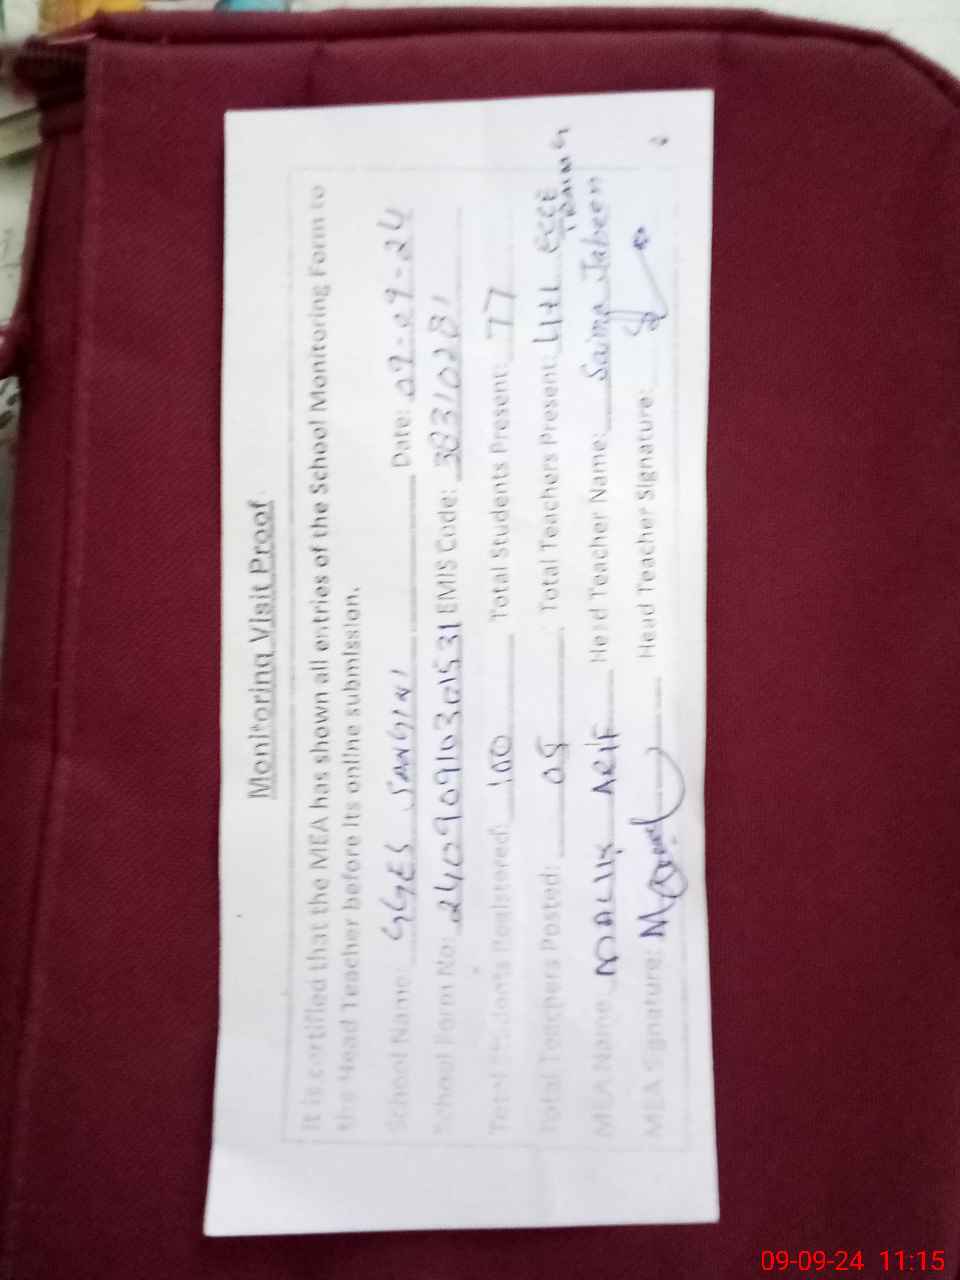 Monitoring Visit Proof
It is certified that the MEA has shown all entries of the School Monitoring Form to
the Head Teacher before its online submission.
School Name: GGES SANGINI Date: 09-09-24
School Form No: 24090910301531 EMIS Code: 38310281
Total Students Registered: 100 Total Students Present: 77
Total Teachers Posted: 05 Total Teachers Present: 4+1 ECCE TRAINING
MEA Name: MALIK ARIF Head Teacher Name: Saima Jabeen
MEA Signature: Head Teacher Signature:
09-09-24 11:15